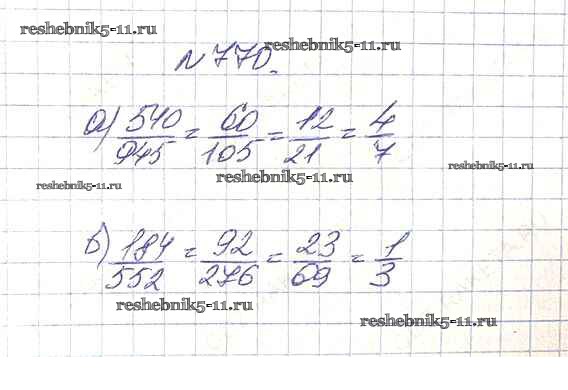 reshebnik5-11.ru
reshebnik5-11.ru
№ 770.
а) 540/945 = 60/105 = 12/21 = 4/7
reshebnik5-11.ru
reshebnik5-11.ru
reshebnik5-11.ru
б) 184/552 = 92/276 = 23/69 = 1/3
reshebnik5-11.ru
reshebnik5-11.ru